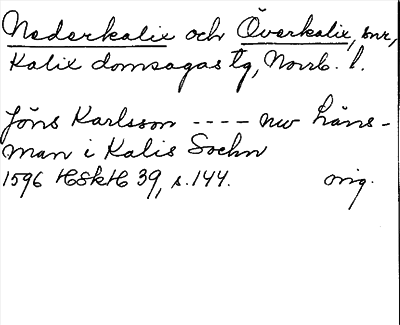 Nederkalix och Överkalix, snr,
Kalix domsagas tg, Norrb. l.
Jöns Karlsson ---- nw häns-
man i Kalis Sochn
1596 HSkH 39, s. 144. orig.